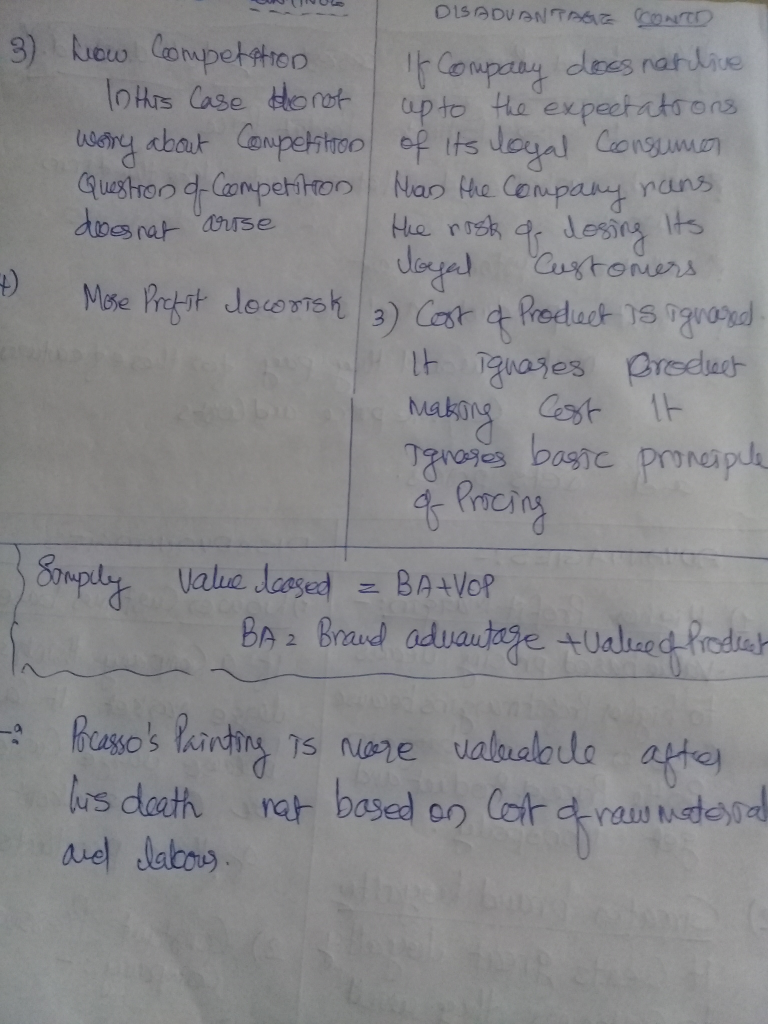 CONTINUE
3) Low Competition
In this Case do not
worry about Competition
Question of Competition
does not arise
4) More Profit low risk
DISADVANTAGE CONTD
If Company does not live
up to the expectations
of its loyal Consumer
than the Company runs
the risk of losing its
loyal Customers
3) Cost of Product is ignored.
It ignores product
making Cost It
ignores basic principle
of Pricing
Simply Value based = BA+VOP
BA = Brand advantage + Value of Product
Picasso's Painting is more valuable after
his death not based on Cost of raw material
and labour.